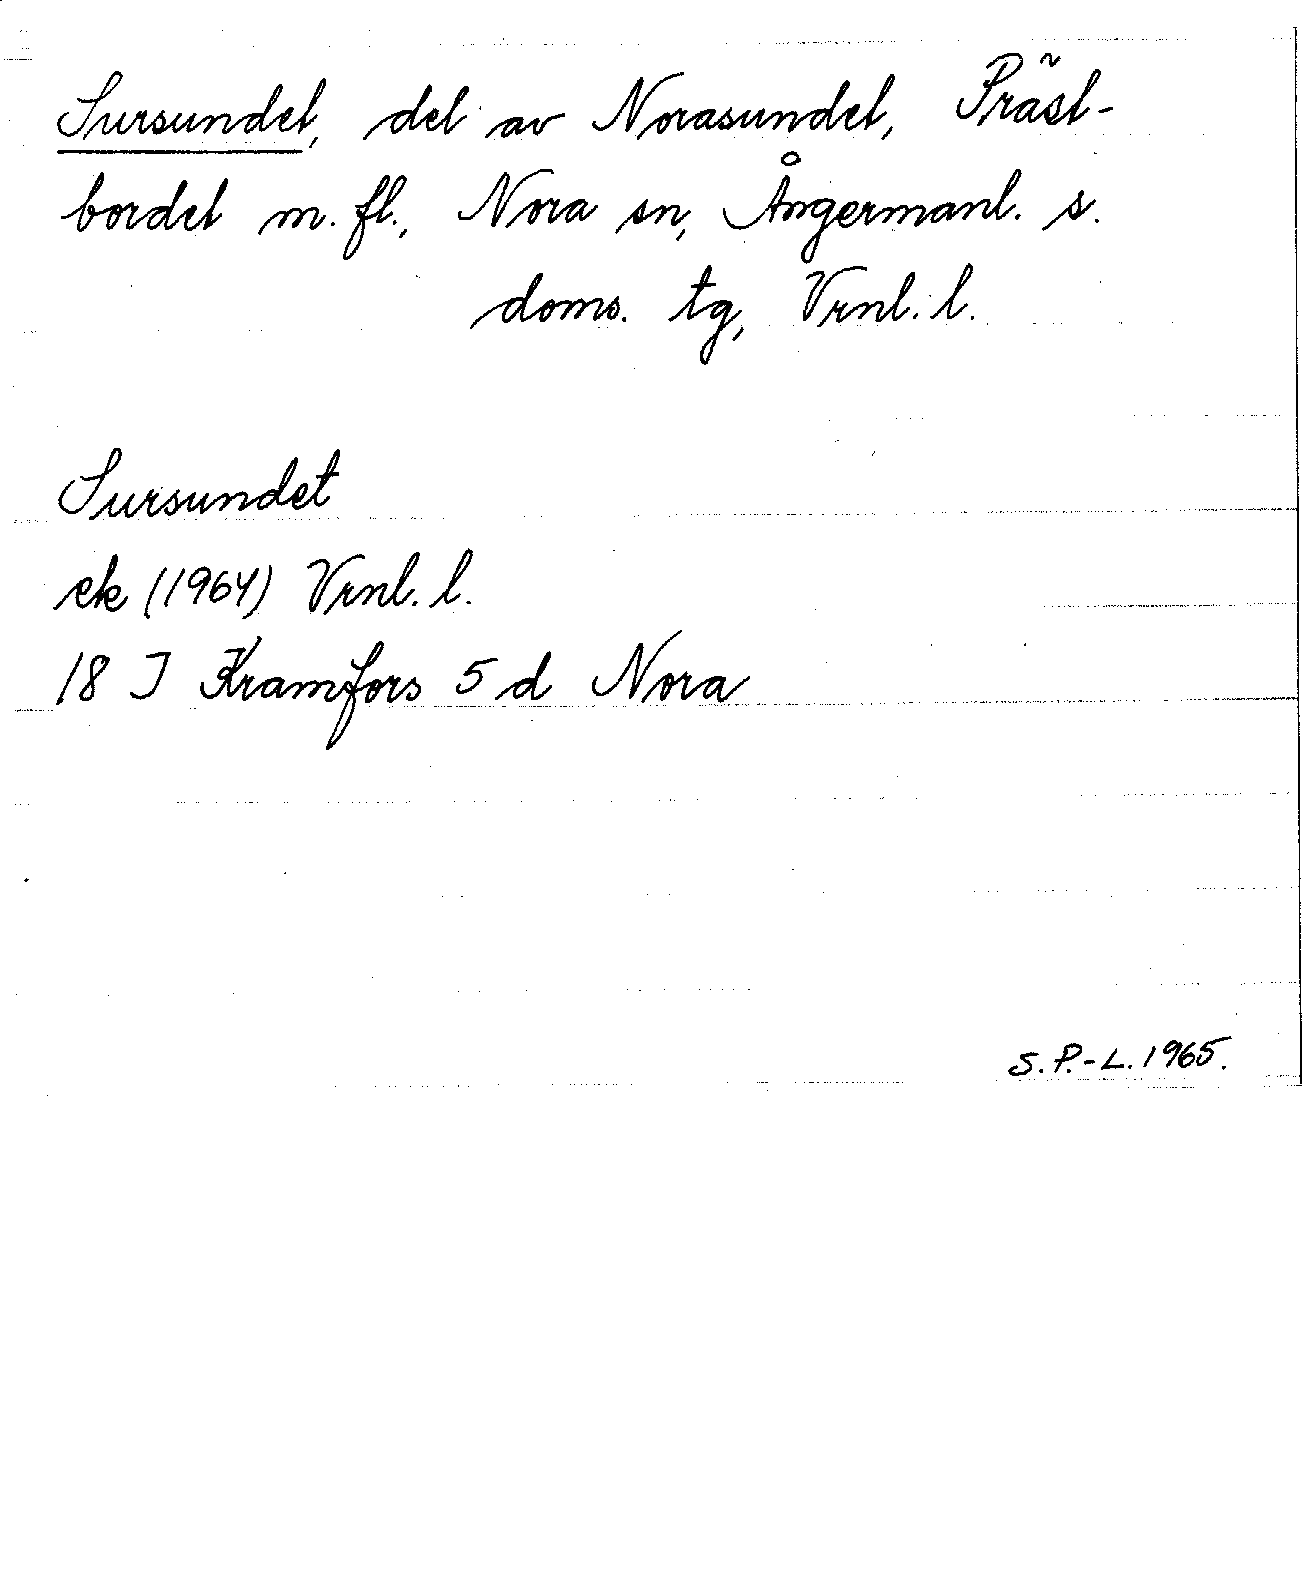 Sursundet, del av Norasundet, Präst-
bordet m. fl., Nora sn, Ångermanl. s.
doms. tg, Vrnl. l.
Sursundet
ek (1964) Vrnl. l.
18 I Kramfors 5 d Nora
S. P.-L. 1965.